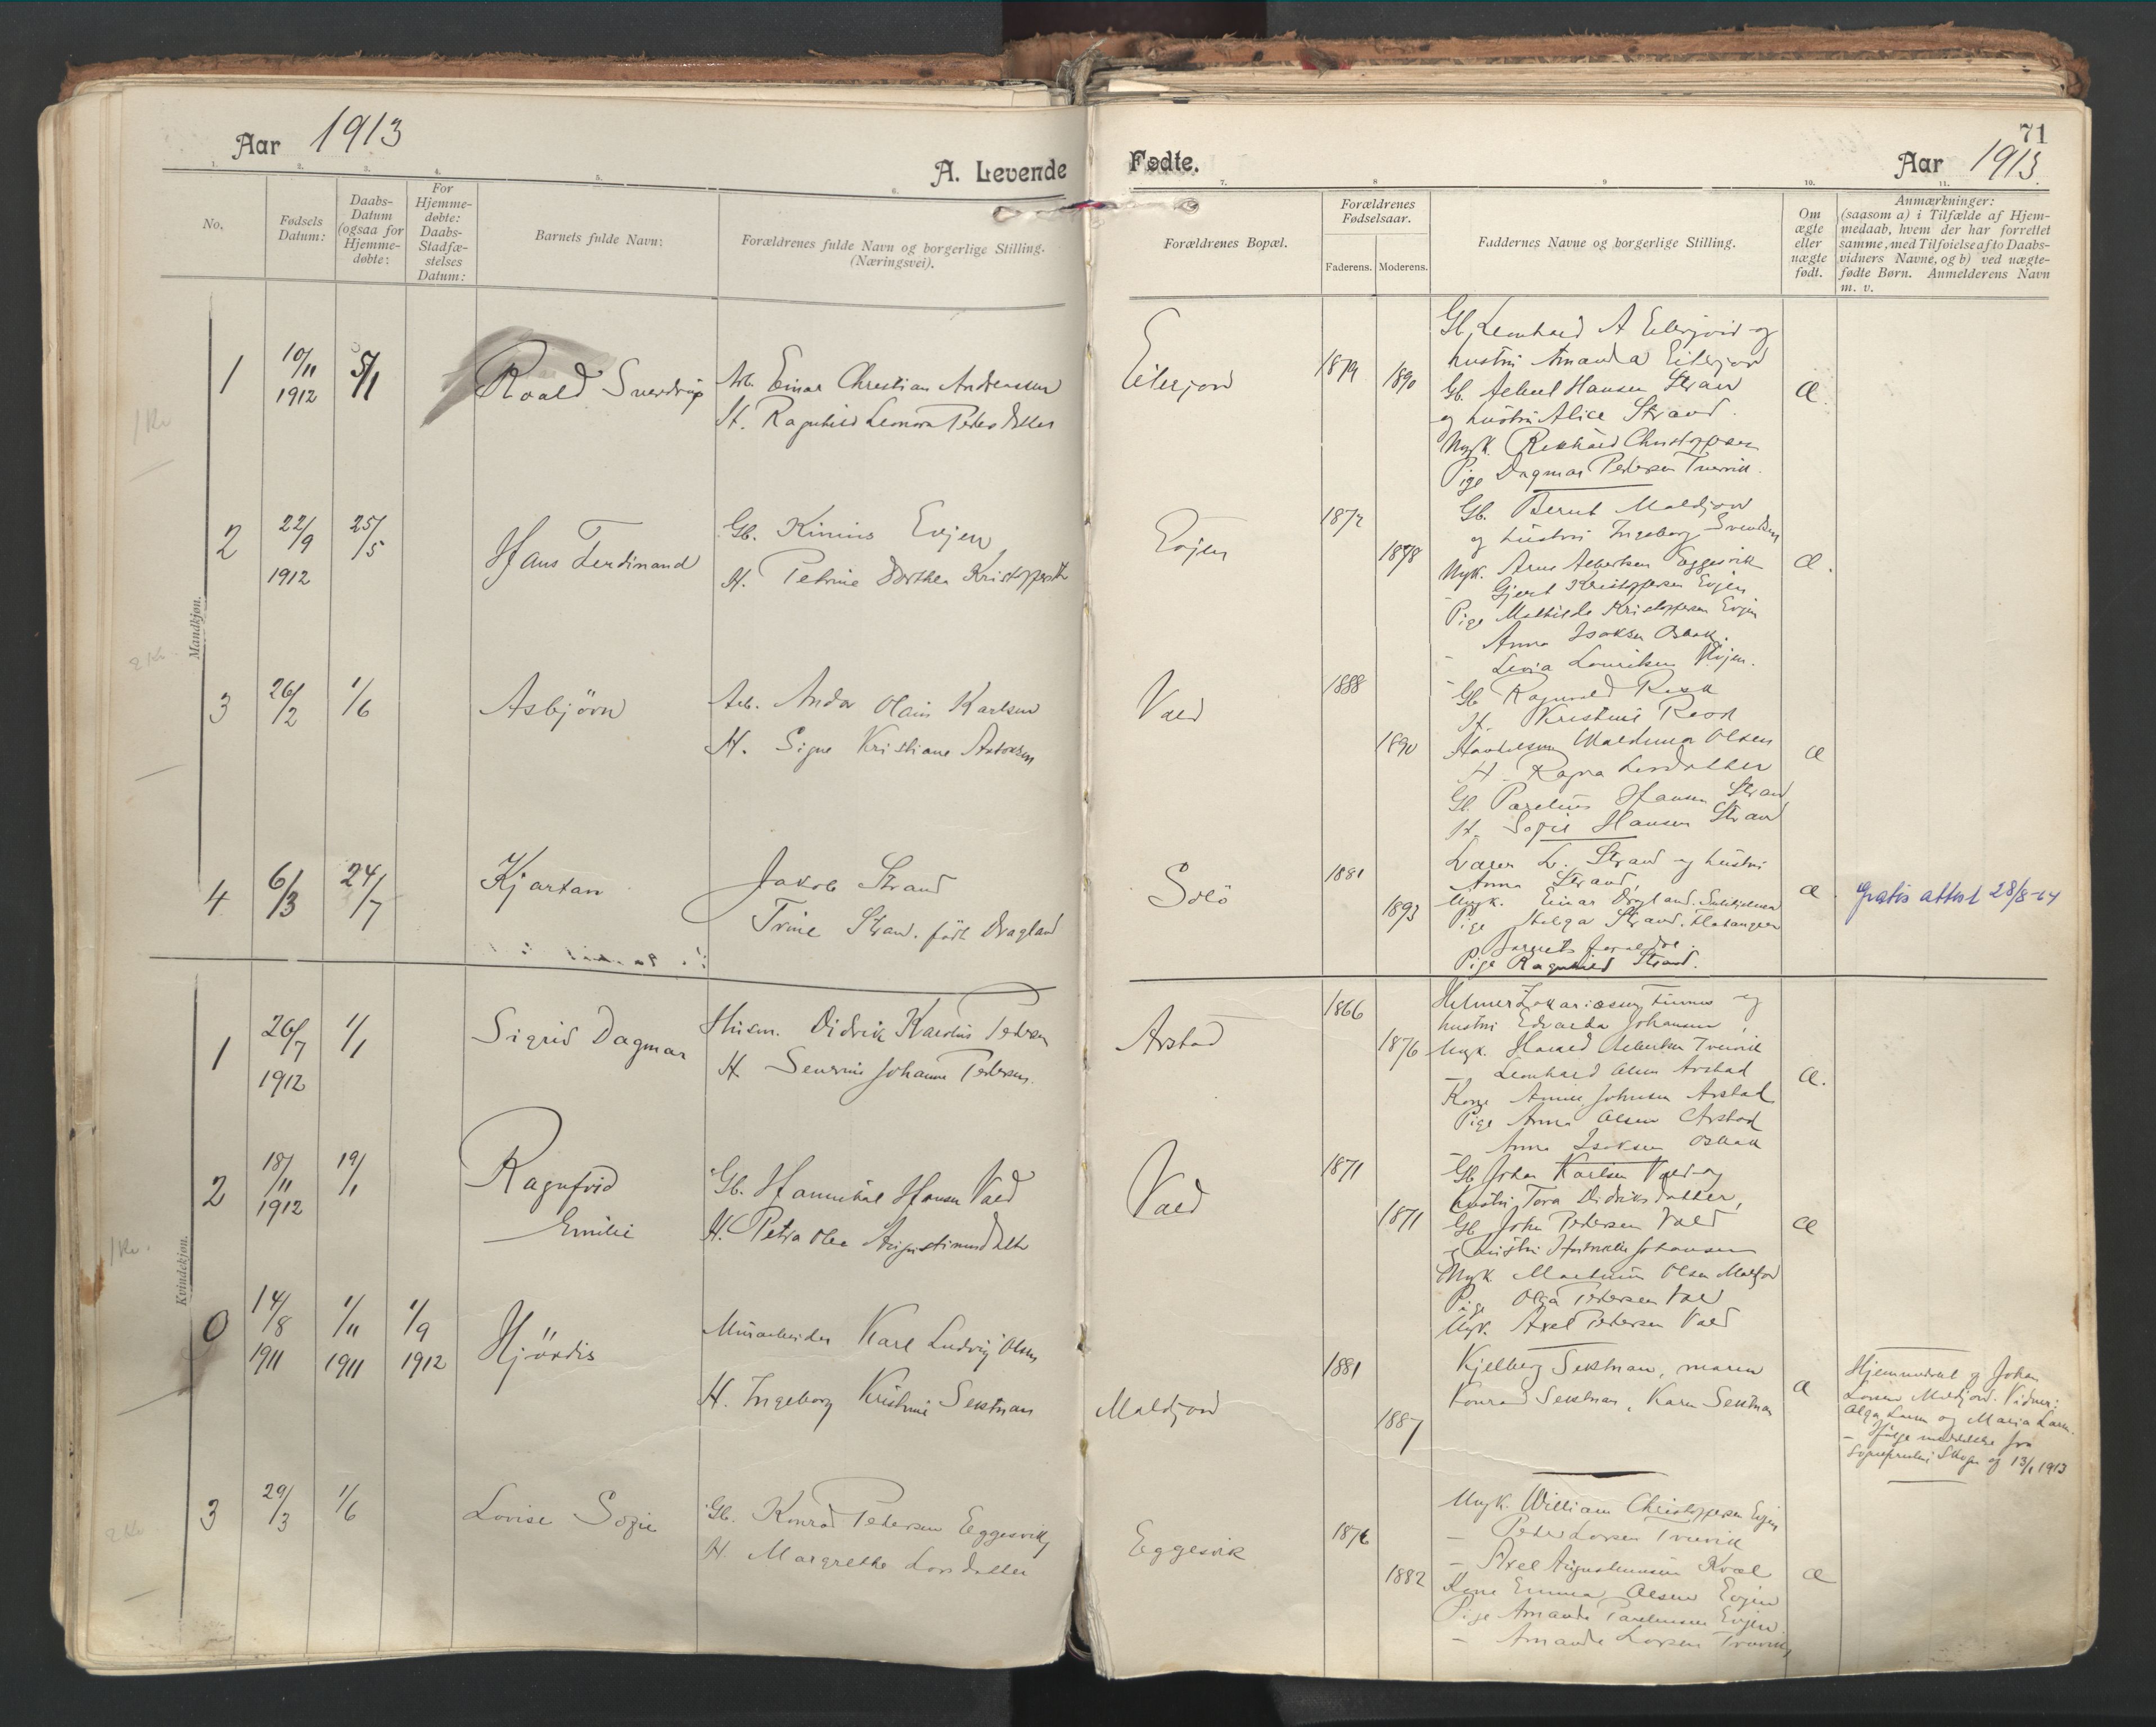 71
Aar 1913
A. Levende
Fødte.
Aar 1913.
1. 2. 3. 4. 5. 6. 7. 8 9 10. 11.
No.
Fødsels
Datum:
Daabs-
Datum
(ogsaa for
Hjemme-
døbte:
For
Hjemme-
døbte:
Daabs-
Stadfæ-
stelses
Datum:
Barnets fulde Navn:
Forældrenes fulde Navn og borgerlige Stilling.
(Næringsvei).
Forældrenes Bopæl.
Forældrenes
Fødselsaar.
Faderens. Moderens.
Faddernes Navne og borgerlige Stilling.
Om
ægte
eller
uægte
født.
Anmærkninger:
(saasom a) i Tilfælde af Hjem-
medaab, hvem der har forrettet
samme, med Tilføielse af to Daabs-
vidners Navne, og b) ved uægte-
fødte Børn. Anmelderens Navn
m. v.
Mandkjøn.
1 10/11 1912 5/1
Roald Sverdrup
Arb. Einar Christian Andreassen
H. Ragnhild Leonora Pedersdatter
Eilerjord
1879 1890
Gb. Leonhard A Eilerjord og
hustru Amanda Eilerjord
Gb. Albert Hansen Strand
og hustru Alice Strand.
Ungk. Rikhard Christoffersen
Pige Dagmar Pedersen Tverrvik.
Æ.
1 Kr
2 22/9 1912 25/5
Hans Ferdinand
Gb. Kinius Evjen
H. Petrine Dorthea Kristoffersdtr
Evjen
1872 1878
Gb. Bernt Maldjord
og hustru Ingeborg Svendsen
Ungk. Arne Albertsen Eggesvik
Gjert Kristoffersen Evjen
Pige Mathilde Kristoffersen Evjen
Anna Isaksen Osbak.
- Lovia Lauritsen Evjen.
Æ.
2 Kr.
3 26/2 1/6
Asbjörn
Arb. Andor Olain Karlsen
H. Signe Kristiane Antonsen
Vald
1888 1890
Gb Ragnvald Risk
H. Kristine
Valdemar Olsen
H. Ragna Larsdatter
Gb. Parelius Hansen Strand
H. Sofie Hansen Strand
Æ
4 6/3 24/7
Kjartan
Jakob Strand
Trine Strand. født Dragland
Solö
1881 1893
Lars L. Strand og hustru
Anna Strand,
Ungk. Einar Dragland.
Pige Helga Strand. Flatangeren
Barnets forældre.
Pige Ragnhild Strand.
Æ.
gratis attest 28/8-14
Kvindekjøn.
1 26/7 1912 1/1
Sigrid Dagmar
Husm. Didrik Kardius Pedersen
H. Severine Johanne Pedersen.
Arstad
1866 1876
Helmer Zakariassen Finnes og
hustru Edvarda Johansen,
Ungk. Harald Albertsen Tverrvik
- Leonhard Olsen Arstad
Kone Annie Johnsen Arstad
Pige Anna Olsen Arstad
- Anna Isaksen Osbak
Æ.
2 18/11 1912 19/1
Ragnfrid
Emilie
Gb. Hannibal Hansen Vald
H. Petra Olea Augustinusdatter
Vald
1871 1871
Gb Johan Karlsen Vald og
hustru Tora Didriksdatter,
Gb John Pedersen Vald
og hustru Johansen
Ungk. Martinus Olsen Maldjord
Pige Olga Pedersen Vald
Ungk. Axel Pedersen Vald
Æ
1 Kr.
0 14/8 1911 1/11 1911 1/9 1912
Hjördis
Minearbeider Karl Ludvig Olsen
H. Ingeborg Kristine Sektnan
Maldjord
1881 1887
Kjelberg Sektnan, Maren
Konrad Sektnan, Karen Sektnan
Æ
Hjemmedøbt af Johan
Larsen Maldjord. Vidner:
Olga Larsen og Maria Larsen.
- Ifølge meddelelse fra
Sognepresten i Skogn af 13/1 1913
3 29/3 1/6
Lovise Sofie
Gb. Konrad Pedersen Eggesvik
H. Margrethe Larsdatter
Eggesvik
1876 1882
Ungk. William Christoffersen Evjen
- Peder Larsen Tverrvik
- Axel Augustinussen Kval
Kone Emma Olsen Evjen
Pige Amanda Pareliussen Evjen.
- Amanda Larsen Tverrvik
Æ
2 Kr